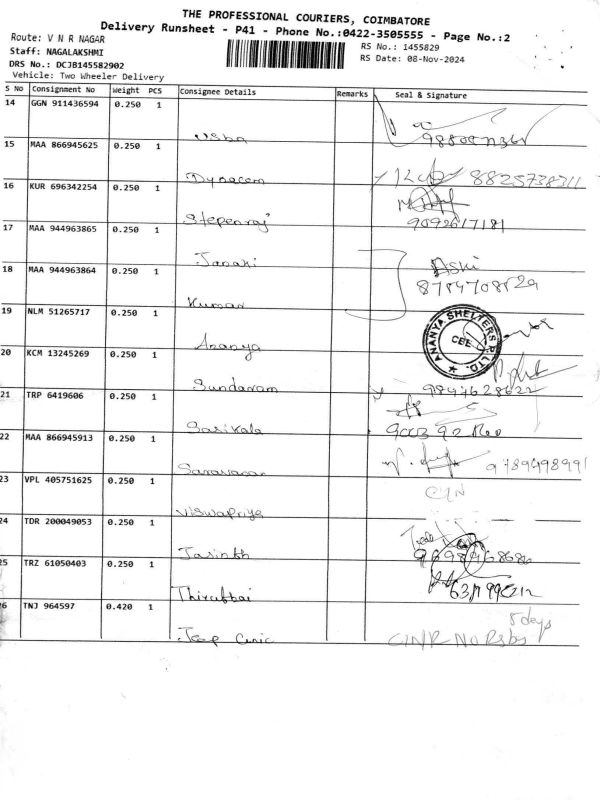 THE PROFESSIONAL COURIERS, COIMBATORE
Delivery Runsheet - P41 - Phone No.:0422-3505555 - Page No.:2
Route: V N R NAGAR
RS No.: 1455829
Staff: NAGALAKSHMI
RS Date: 08-Nov-2024
DRS No.: DCJB145582902
Vehicle: Two Wheeler Delivery
S No Consignment No Weight PCS Consignee Details Remarks Seal & Signature
14 GGN 911436594 0.250 1
Usha
15 MAA 866945625 0.250 1
8825738311
16 KUR 696342254 0.250 1
Stepenraj
9092617181
17 MAA 944963865 0.250 1
Janaki
18 MAA 944963864 0.250 1
Kumar
19 NLM 51265717 0.250 1
Ananya
ANANYA SHELTERS P. LTD.
CBE
20 KCM 13245269 0.250 1
Sundaram
21 TRP 6419606 0.250 1
Sasikala
22 MAA 866945913 0.250 1
Saravanan
23 VPL 405751625 0.250 1
Viswapriya
24 TDR 200049053 0.250 1
Jasinth
25 TRZ 61050403 0.250 1
26 TNJ 964597 0.420 1
5 days